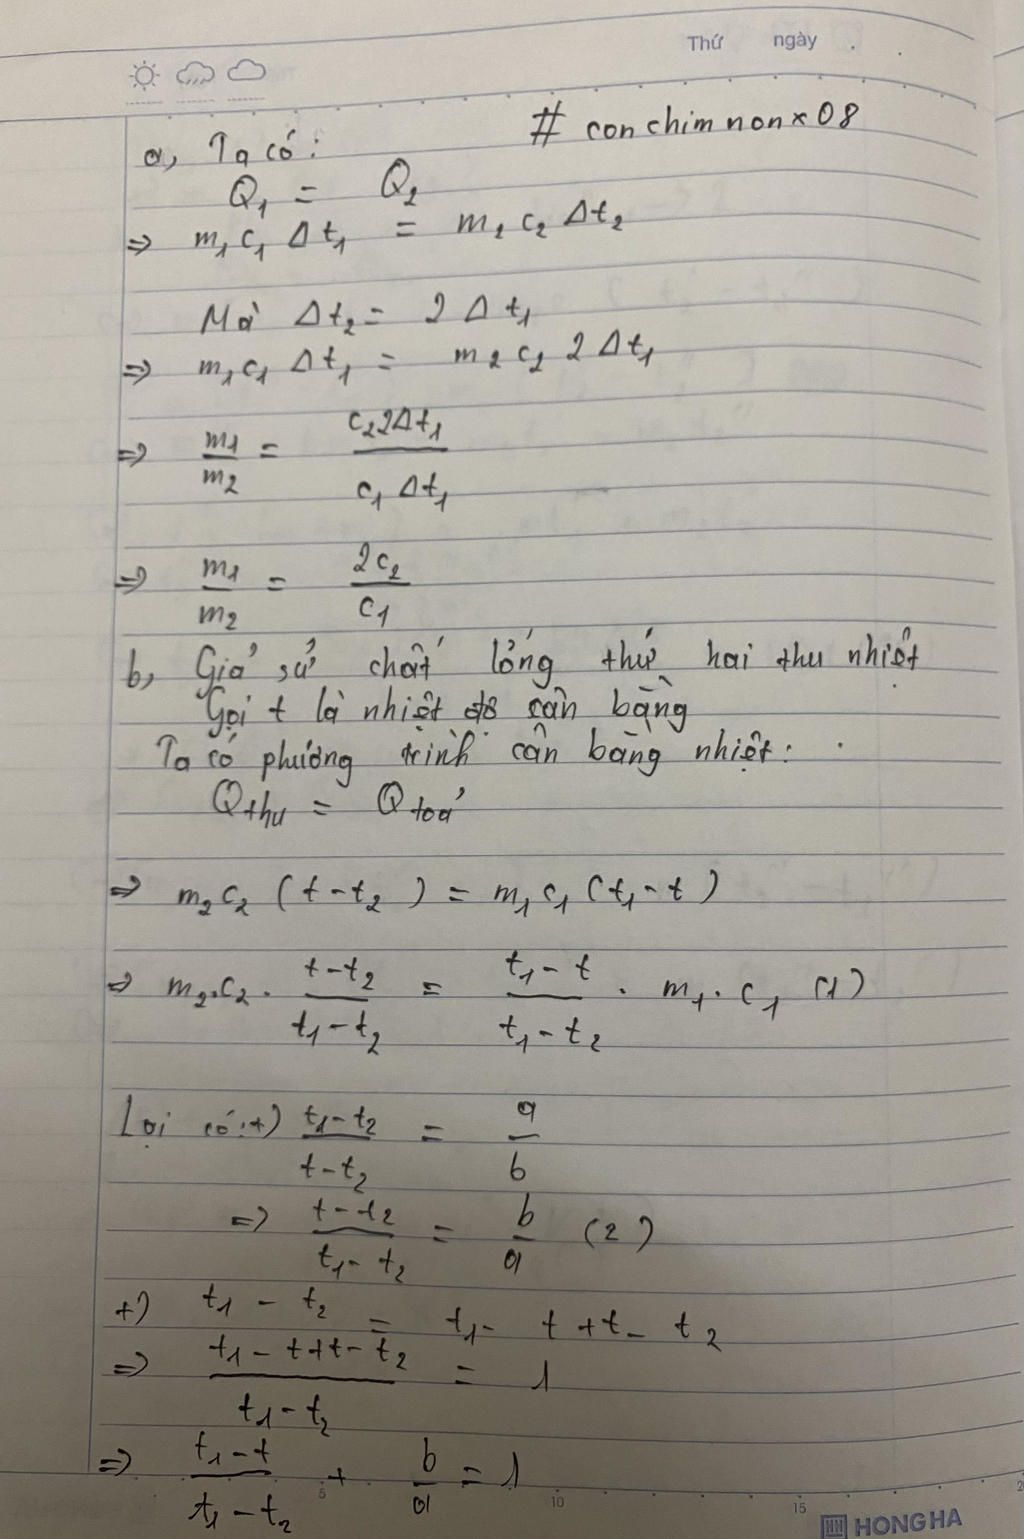 Thứ ngày
# conchimnonx08
a, Ta có:
Q₁ = Q₂
=> m₁ c₁ Δt₁ = m₂ c₂ Δt₂
Mà Δt₂ = 2 Δt₁
=> m₁ c₁ Δt₁ = m₂ c₂ 2 Δt₁
=> m₁/m₂ = c₂2Δt₁ / c₁ Δt₁
=> m₁/m₂ = 2c₂/c₁
b, Giả sử chất lỏng thứ hai thu nhiệt
Gọi t là nhiệt độ cân bằng
Ta có phương trình cân bằng nhiệt:
Qthu = Qtoả
=> m₂c₂ (t - t₂) = m₁ c₁ (t₁ - t)
=> m₂.c₂ . (t - t₂)/(t₁ - t₂) = (t₁ - t)/(t₁ - t₂) . m₁ . c₁ (1)
Lại có: +) (t₁ - t₂)/(t - t₂) = a/b
=> (t - t₂)/(t₁ - t₂) = b/a (2)
+) t₁ - t₂ = t₁ - t + t - t₂
=> (t₁ - t + t - t₂)/(t₁ - t₂) = 1
=> (t₁ - t)/(t₁ - t₂) + b/a = 1
5 10 15 20
HONG HA